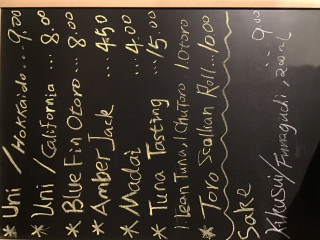 * Uni / Hokkaido ... 9.00
* Uni / California ... 8.00
* Blue Fin Otoro ... 8.00
* Amber Jack ... 4.50
* Madai ... 4.00
* Tuna Tasting ... 15.00
1 Lean Tuna, 1 ChuToro 1 Otoro
* Toro Scallian Roll ... 10.00
Sake
Kikusui / Funaguchi, 200ml ... 9.00